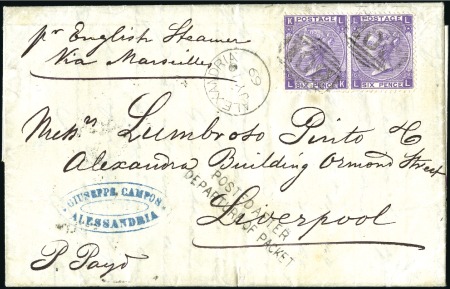 pr English Steamer
Via Marseilles
ALEXANDRIA
69
POSTAGE
K L
L K
SIX PENCE
POSTAGE
L L
L L
SIX PENCE
Messrs Lumbroso Pinto & Co
Alexandra Building Ormond Street
Liverpool
POSTED AFTER
DEPARTURE OF PACKET
GIUSEPPE CAMPOS
ALESSANDRIA
P. Payd